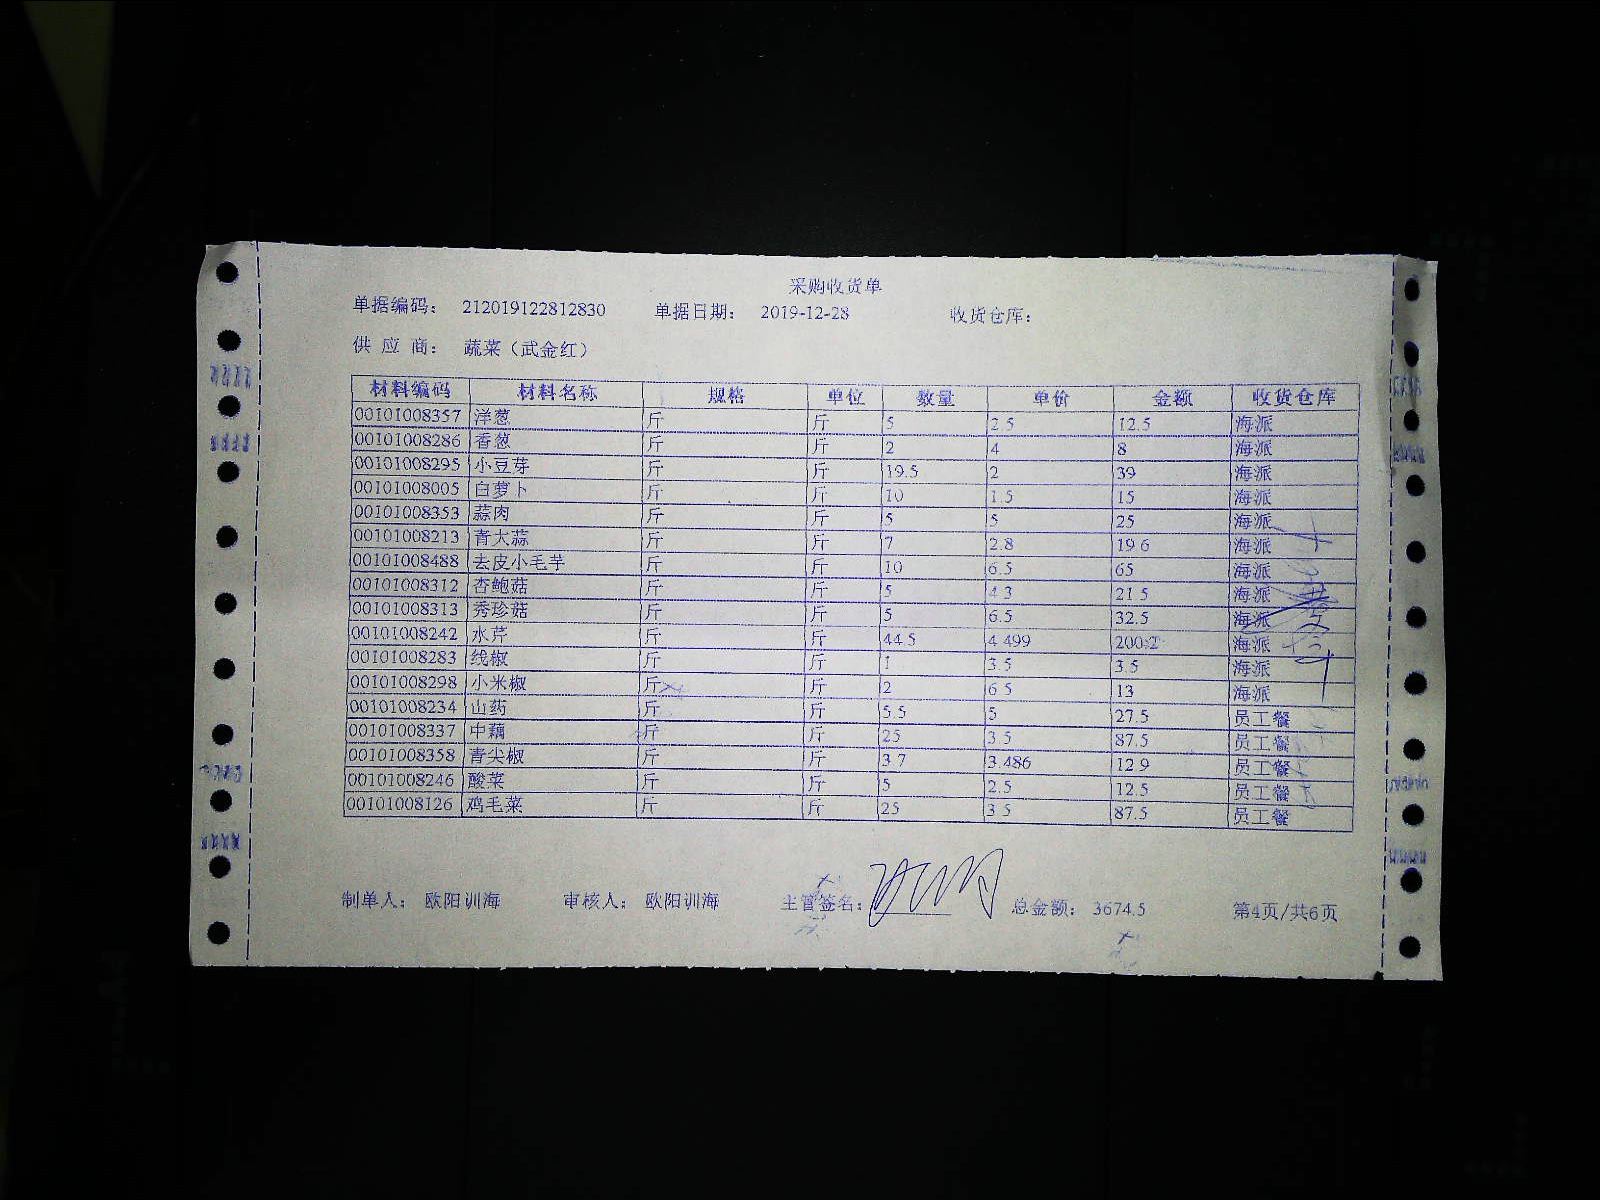 采购收货单
单据编码： 212019122812830 单据日期： 2019-12-28 收货仓库：
供 应 商： 蔬菜（武金红）
材料编码 材料名称 规格 单位 数量 单价 金额 收货仓库
00101008357 洋葱 斤 斤 5 2.5 12.5 海派
00101008286 香葱 斤 斤 2 4 8 海派
00101008295 小豆芽 斤 斤 19.5 2 39 海派
00101008005 白萝卜 斤 斤 10 1.5 15 海派
00101008353 蒜肉 斤 斤 5 5 25 海派
00101008213 青大蒜 斤 斤 7 2.8 19.6 海派
00101008488 去皮小毛芋 斤 斤 10 6.5 65 海派
00101008312 杏鲍菇 斤 斤 5 4.3 21.5 海派
00101008313 秀珍菇 斤 斤 5 6.5 32.5 海派
00101008242 水芹 斤 斤 44.5 4.499 200.2 海派
00101008283 线椒 斤 斤 1 3.5 3.5 海派
00101008298 小米椒 斤 斤 2 6.5 13 海派
00101008234 山药 斤 斤 5.5 5 27.5 员工餐
00101008337 中藕 斤 斤 25 3.5 87.5 员工餐
00101008358 青尖椒 斤 斤 3.7 3.486 12.9 员工餐
00101008246 酸菜 斤 斤 5 2.5 12.5 员工餐
00101008126 鸡毛菜 斤 斤 25 3.5 87.5 员工餐
制单人： 欧阳训海 审核人： 欧阳训海 主管签名： 总金额： 3674.5 第4页/共6页